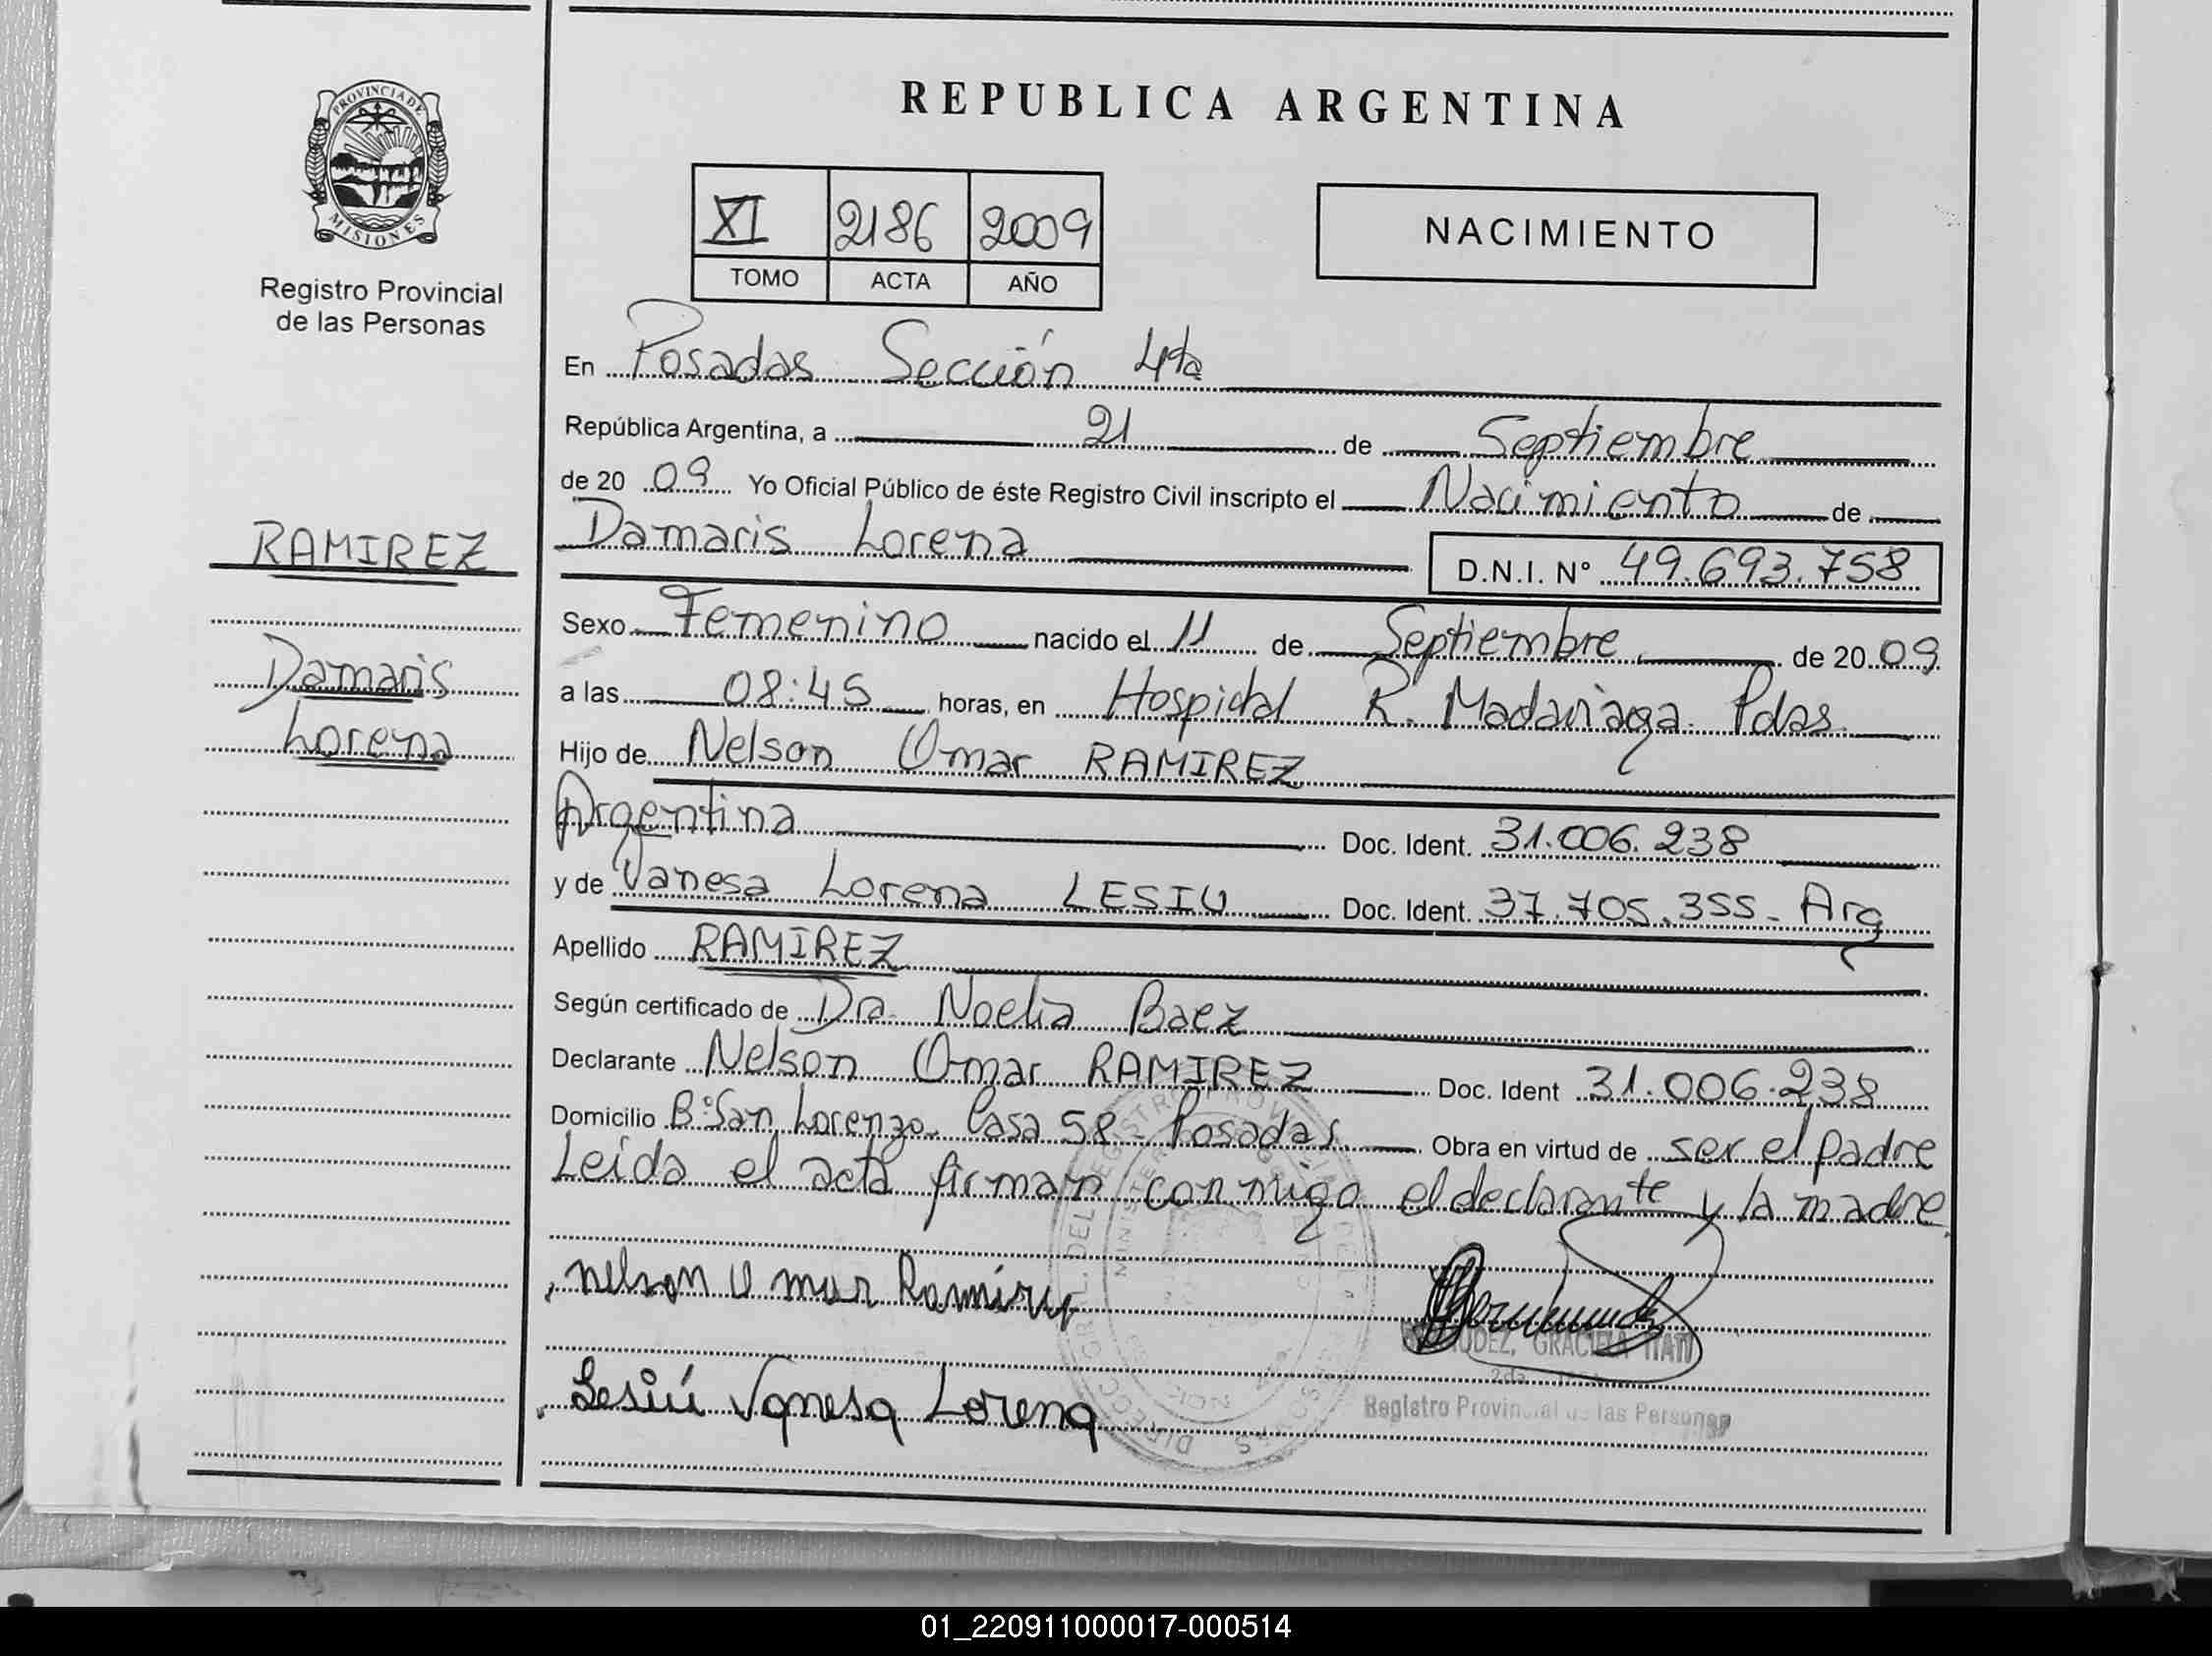 REPUBLICA ARGENTINA
PROVINCIA DE
MISIONES
Registro Provincial
de las Personas
XI 2186 2009
TOMO ACTA AÑO
NACIMIENTO
En Posadas Sección 4ta
República Argentina, a 21 de Septiembre
de 20 09 Yo Oficial Público de éste Registro Civil inscripto el Nacimiento de
Damaris Lorena D.N.I. Nº 49.693.758
RAMIREZ
Damaris
Lorena
Sexo Femenino nacido el 11 de Septiembre de 20 09
a las 08:45 horas, en Hospital R. Madariaga Pdas.
Hijo de Nelson Omar RAMIREZ
Argentina Doc. Ident. 31.006.238
y de Vanesa Lorena LESIU Doc. Ident. 37.705.355- Arg
Apellido RAMIREZ
Según certificado de Dra. Noelia Baez
Declarante Nelson Omar RAMIREZ Doc. Ident 31.006.238
Domicilio Bº San Lorenzo- Casa 58- Posadas Obra en virtud de ser el padre
Leída el acta firman conmigo el declarante y la madre
Nelson Omar Ramirez
GRACIELA ITATI
Registro Provincial de las Personas
Lesiú Vanesa Lorena
01_220911000017-000514